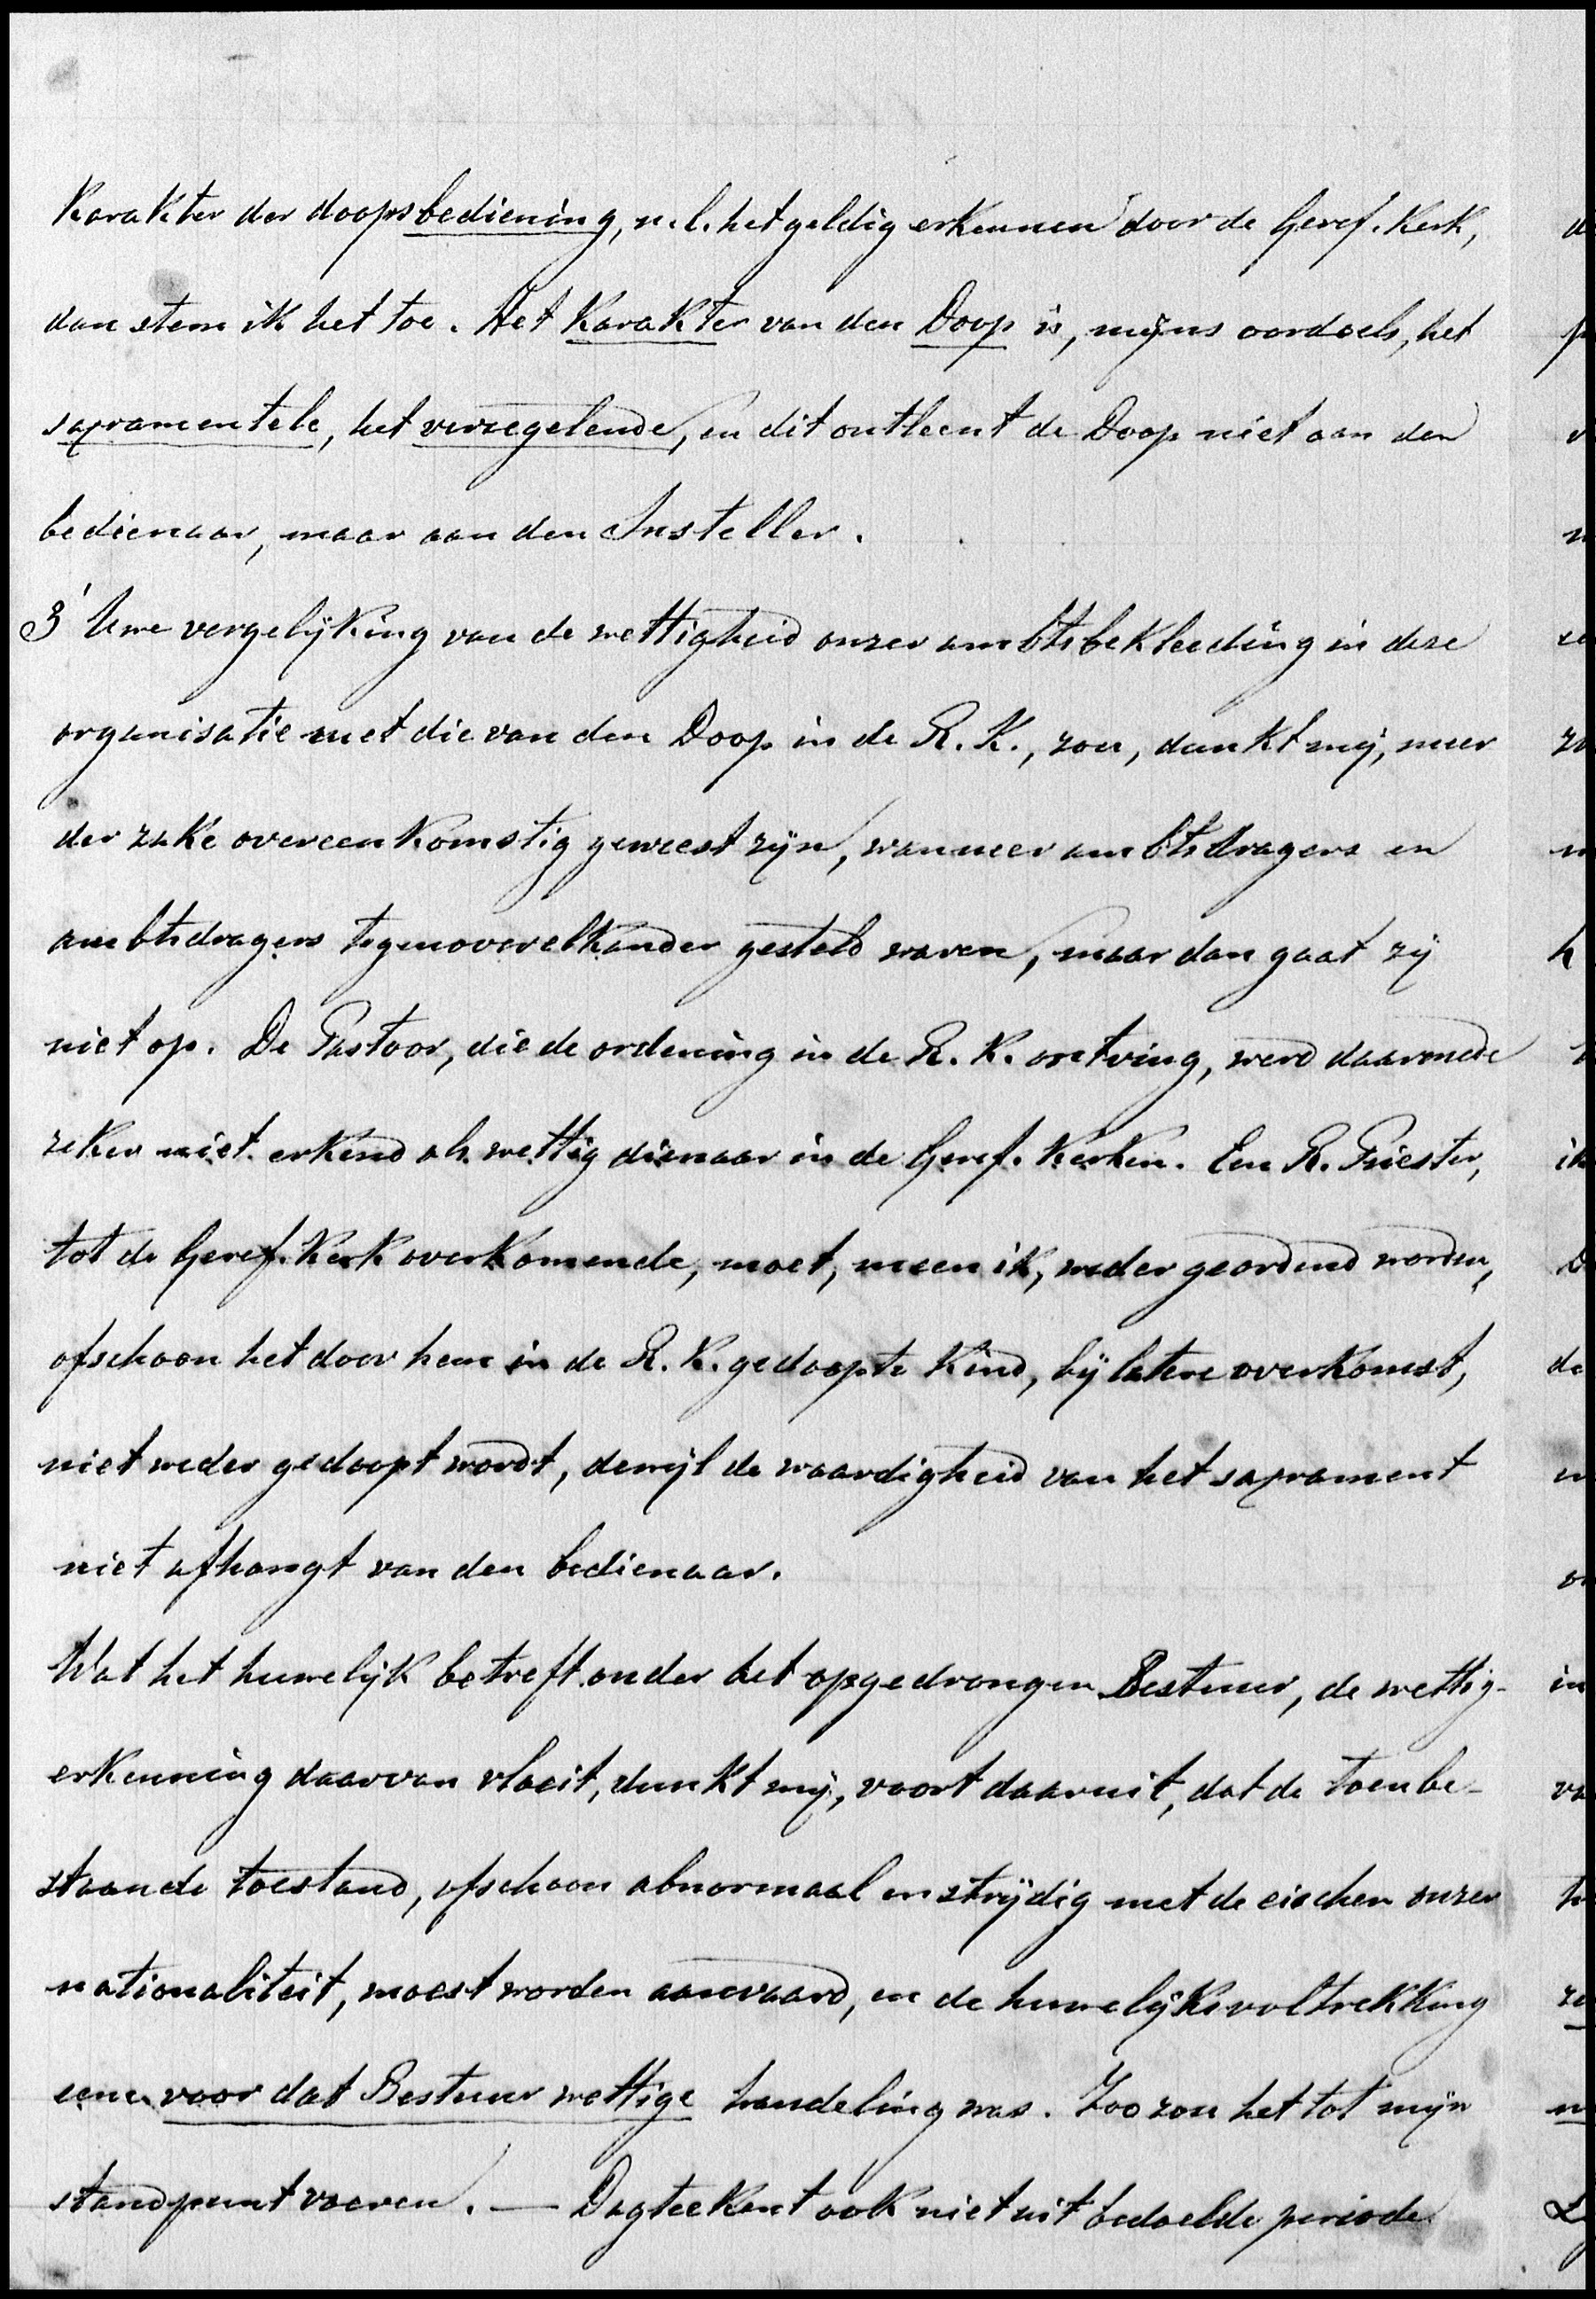 Karakter der doopsbediening, n.l. het geldig erkennen door de Geref. Kerk,
dan stem ik het toe. Het Karakter van den Doop is, mijns oordeels, het
sacramentele, het verzegelende, en dit ontleent de Doop niet aan den
bedienaar, maar aan den Insteller.
3' Uwe vergelijking van de wettigheid onzer ambtsbekleeding in deze
organisatie met die van den Doop in de R. K., zou, dunkt mij, meer
der zake overeenkomstig geweest zijn, wanneer ambtsdragers en
ambtsdragers tegenover elkander gesteld waren, maar dan gaat zij
niet op. De Pastoor, die de ordening in de R. K. ontving, werd daarmede
zeker niet erkend als wettig dienaar in de Geref. Kerken. Een R. Priester,
tot de Geref. Kerk overkomende, moet, meen ik, weder geordend worden,
ofschoon het door hem in de R. K. gedoopte Kind, bij latere overkomst,
niet weder gedoopt wordt, dewijl de waardigheid van het sacrament
niet afhangt van den bedienaar.
Wat het huwelijk betreft onder het opgedrongen Bestuur, de wettig-
erkenning daarvan vloeit, dunkt mij, voort daaruit, dat de toen be-
staande toestand, ofschoon abnormaal en strijdig met de eischen onzer
nationaliteit, moest worden aanvaard, en de huwelijksvoltrekking
eene voor dat Bestuur wettige handeling was. Zoo zou het tot mijn
standpunt voeren. — Dagteekent ook niet uit bedoelde periode